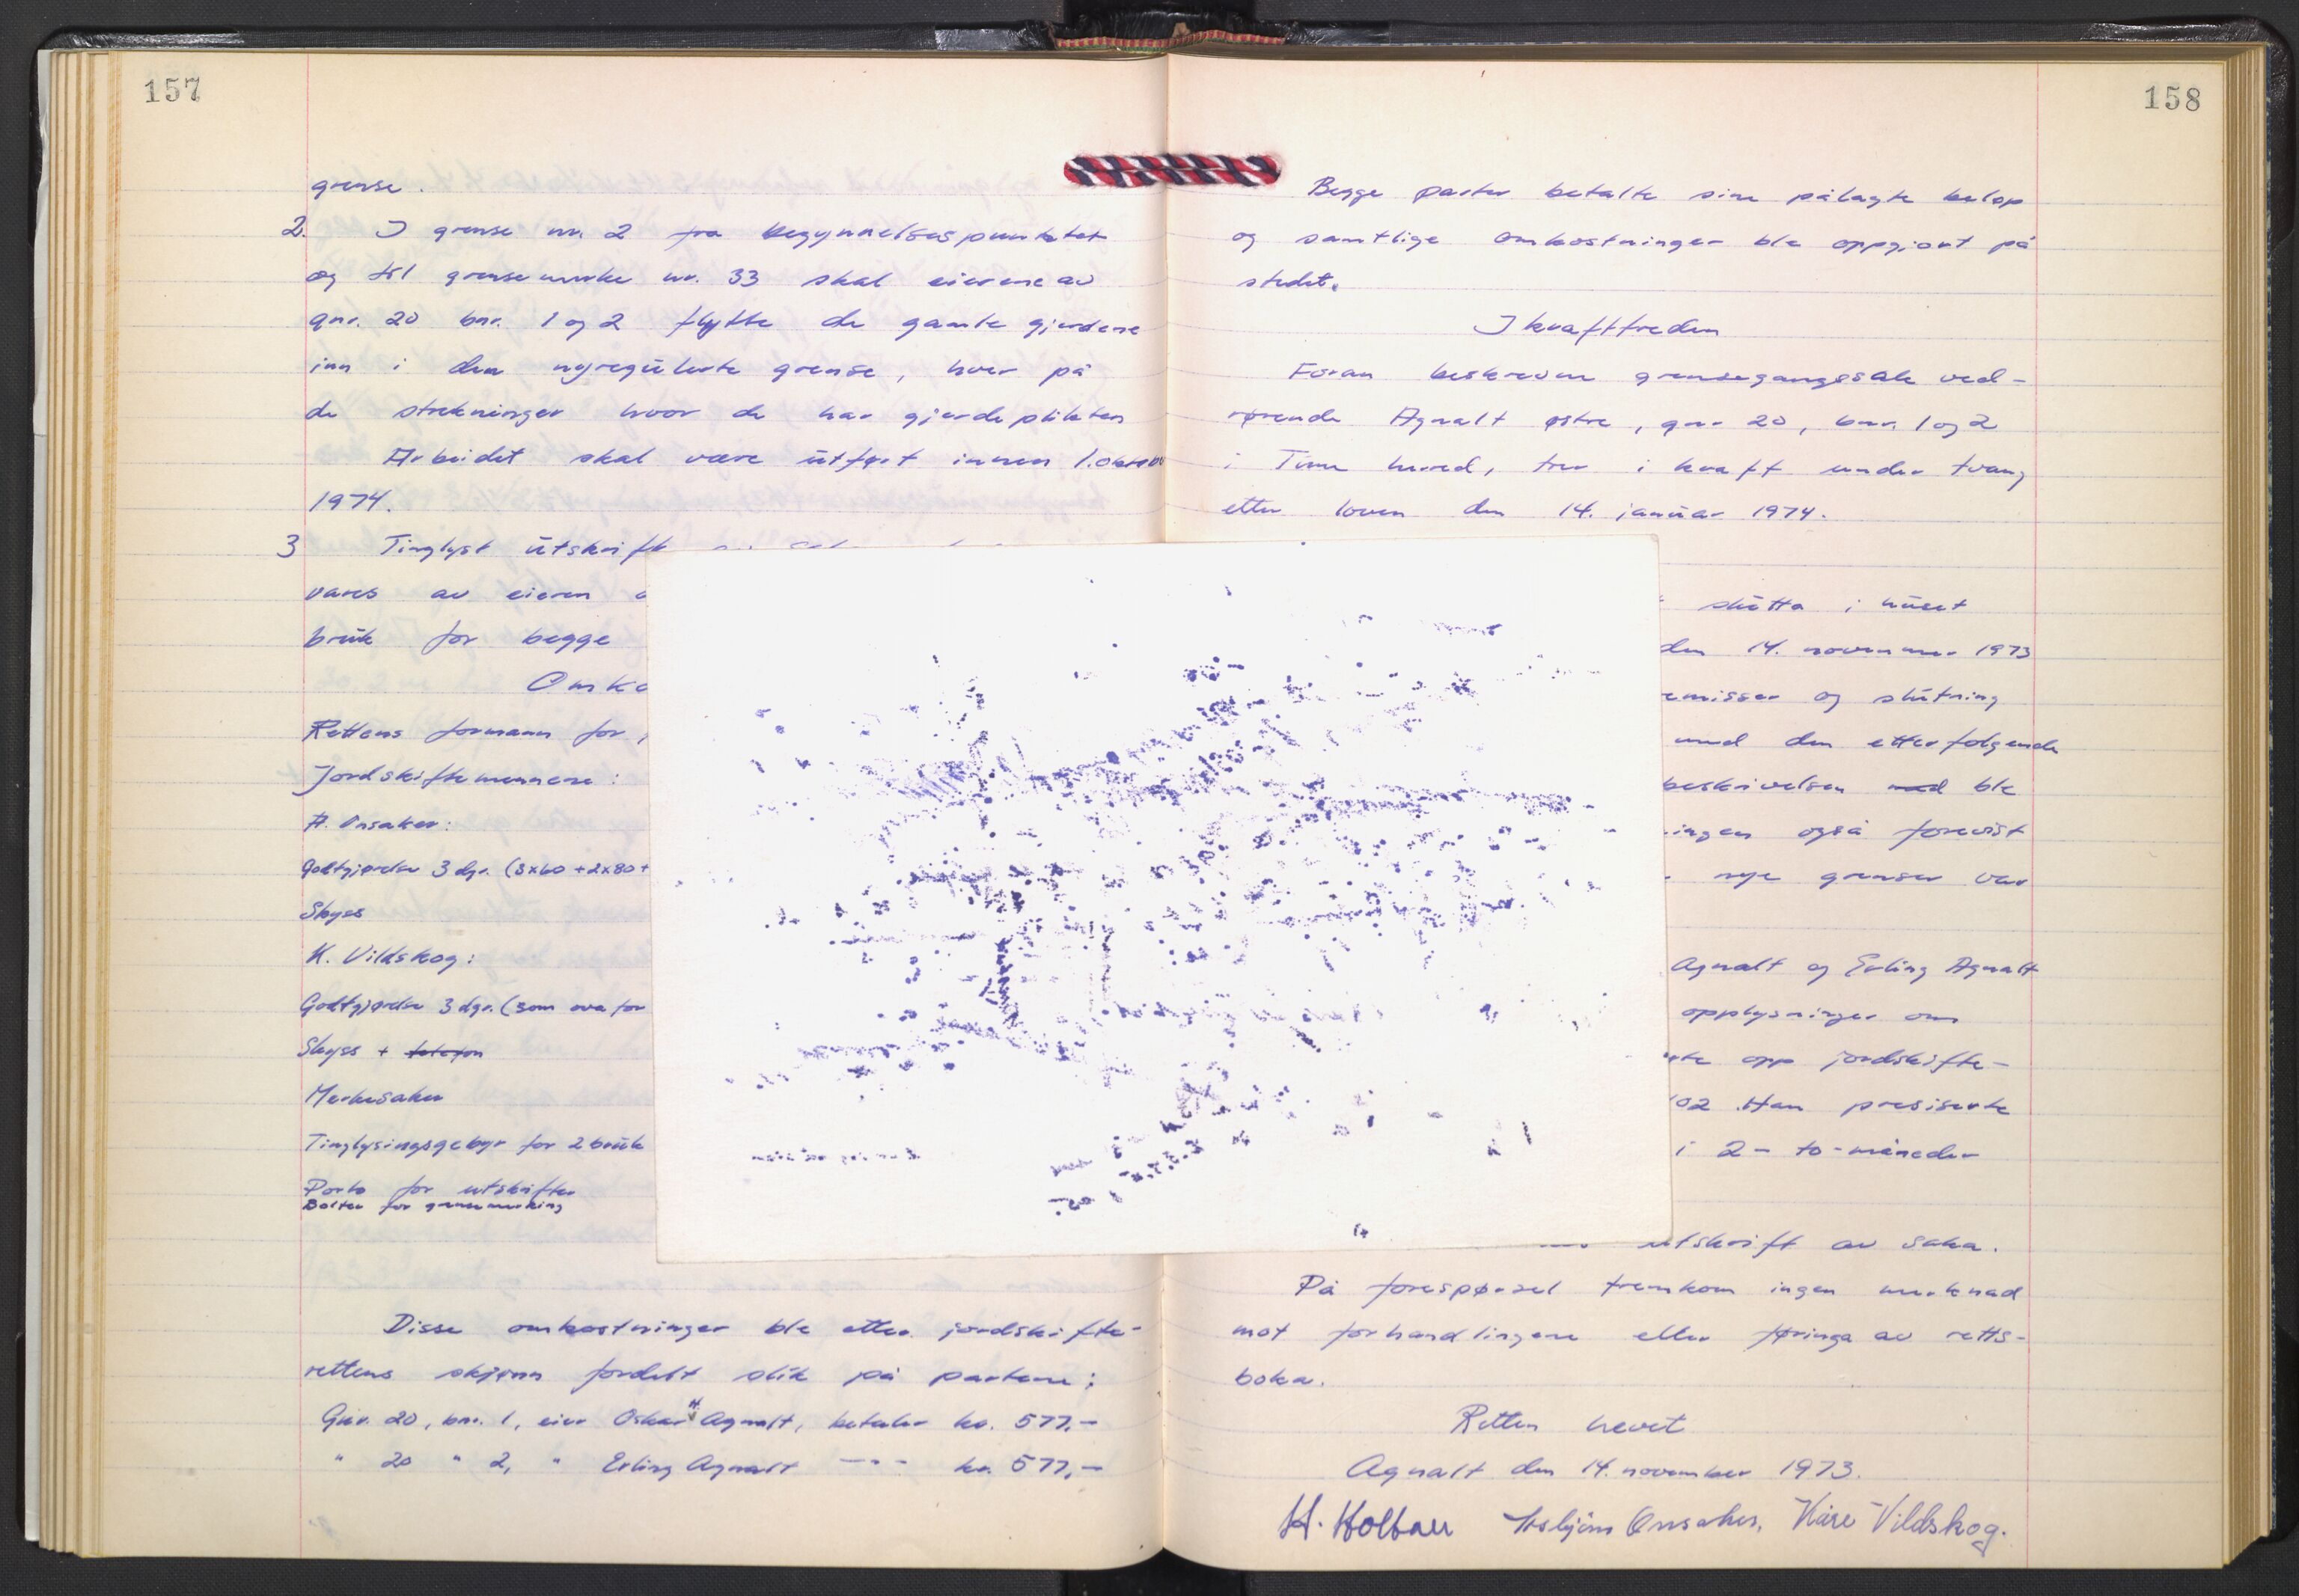 157
grense.
2. I grense nr. 2 fra begynnelsespunktet
og til grensemerke nr. 33 skal eierene av
gnr. 20 bnr. 1 og 2 flytte de gamle gjerdene
inn i den nyregulerte grense, hver på
de strekninger hvor de har gjerdeplikten
Arbeidet skal være utført innen 1. oktober
1974.
3 Tinglyst utskrift
vares av eieren
bruk for begge
Rettens formann for
Jordskiftemennene:
A. Onsaker:
Godtgjørelse 3 dgr. (3x60 + 2x80 +
Skyss
K. Vildskog:
Godtgjørelse 3 dgr. (som ova for
Skyss + telefon
Merkesaker
Tinglysingsgebyr for 2 bruk
Porto for utskrifter
Bolter for grensemerking
Disse omkostninger ble etter jordskifte-
rettens skjønn fordelt slik på partene:
Gnr. 20, bnr. 1, eier Oskar H. Agnalt, betaler kr. 577,-
" 20 " 2, " Erling Agnalt -"- kr. 577,-
158
Begge parter betalte sine pålagte beløp
og samtlige omkostninger ble oppgjort på
stedet.
Ikrafttreden
Foran beskrevne grensegangssak ved-
rørende Agnalt østre, gnr 20, bnr. 1 og 2
i herred, trer i kraft under tvang
etter loven den 14. januar 1974.
slutta i huset
den 14. november 1973
emisser og slutning
med den etterfølgende
beskrivelsen med ble
ingen også forevist
nye grenser var
Agnalt og Erling Agnalt
opplysninger om
opp jordskifte-
102. Han presiserte
i 2 - to - måneder
utskrift av saka.
På forespørsel fremkom ingen merknad
mot forhandlingene eller føringa av retts-
boka.
Retten hevet
Agnalt den 14. november 1973.
H. Holtan Asbjørn Onsaker, Kåre Vildskog.